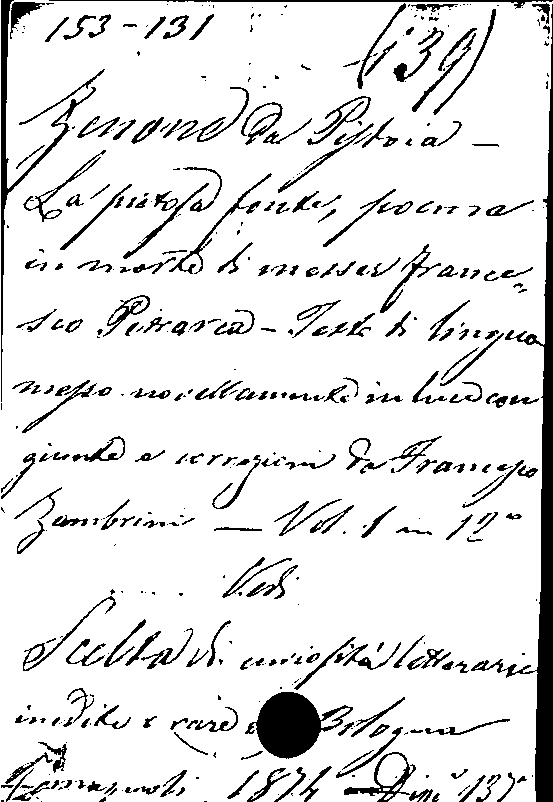 153-131
(139)
Zenone da Pistoia —
La pietosa fonte, poema
in morte di messer France-
sco Petrarca - Testo di lingua
messo novellamente in luce con
giunte e correzioni da Francesco
Zambrini — Vol. 1 in 12º
Vedi
Scelta di curiosità letterarie
inedite e rare Bologna
Romagnoli 1874 — Disp. 137